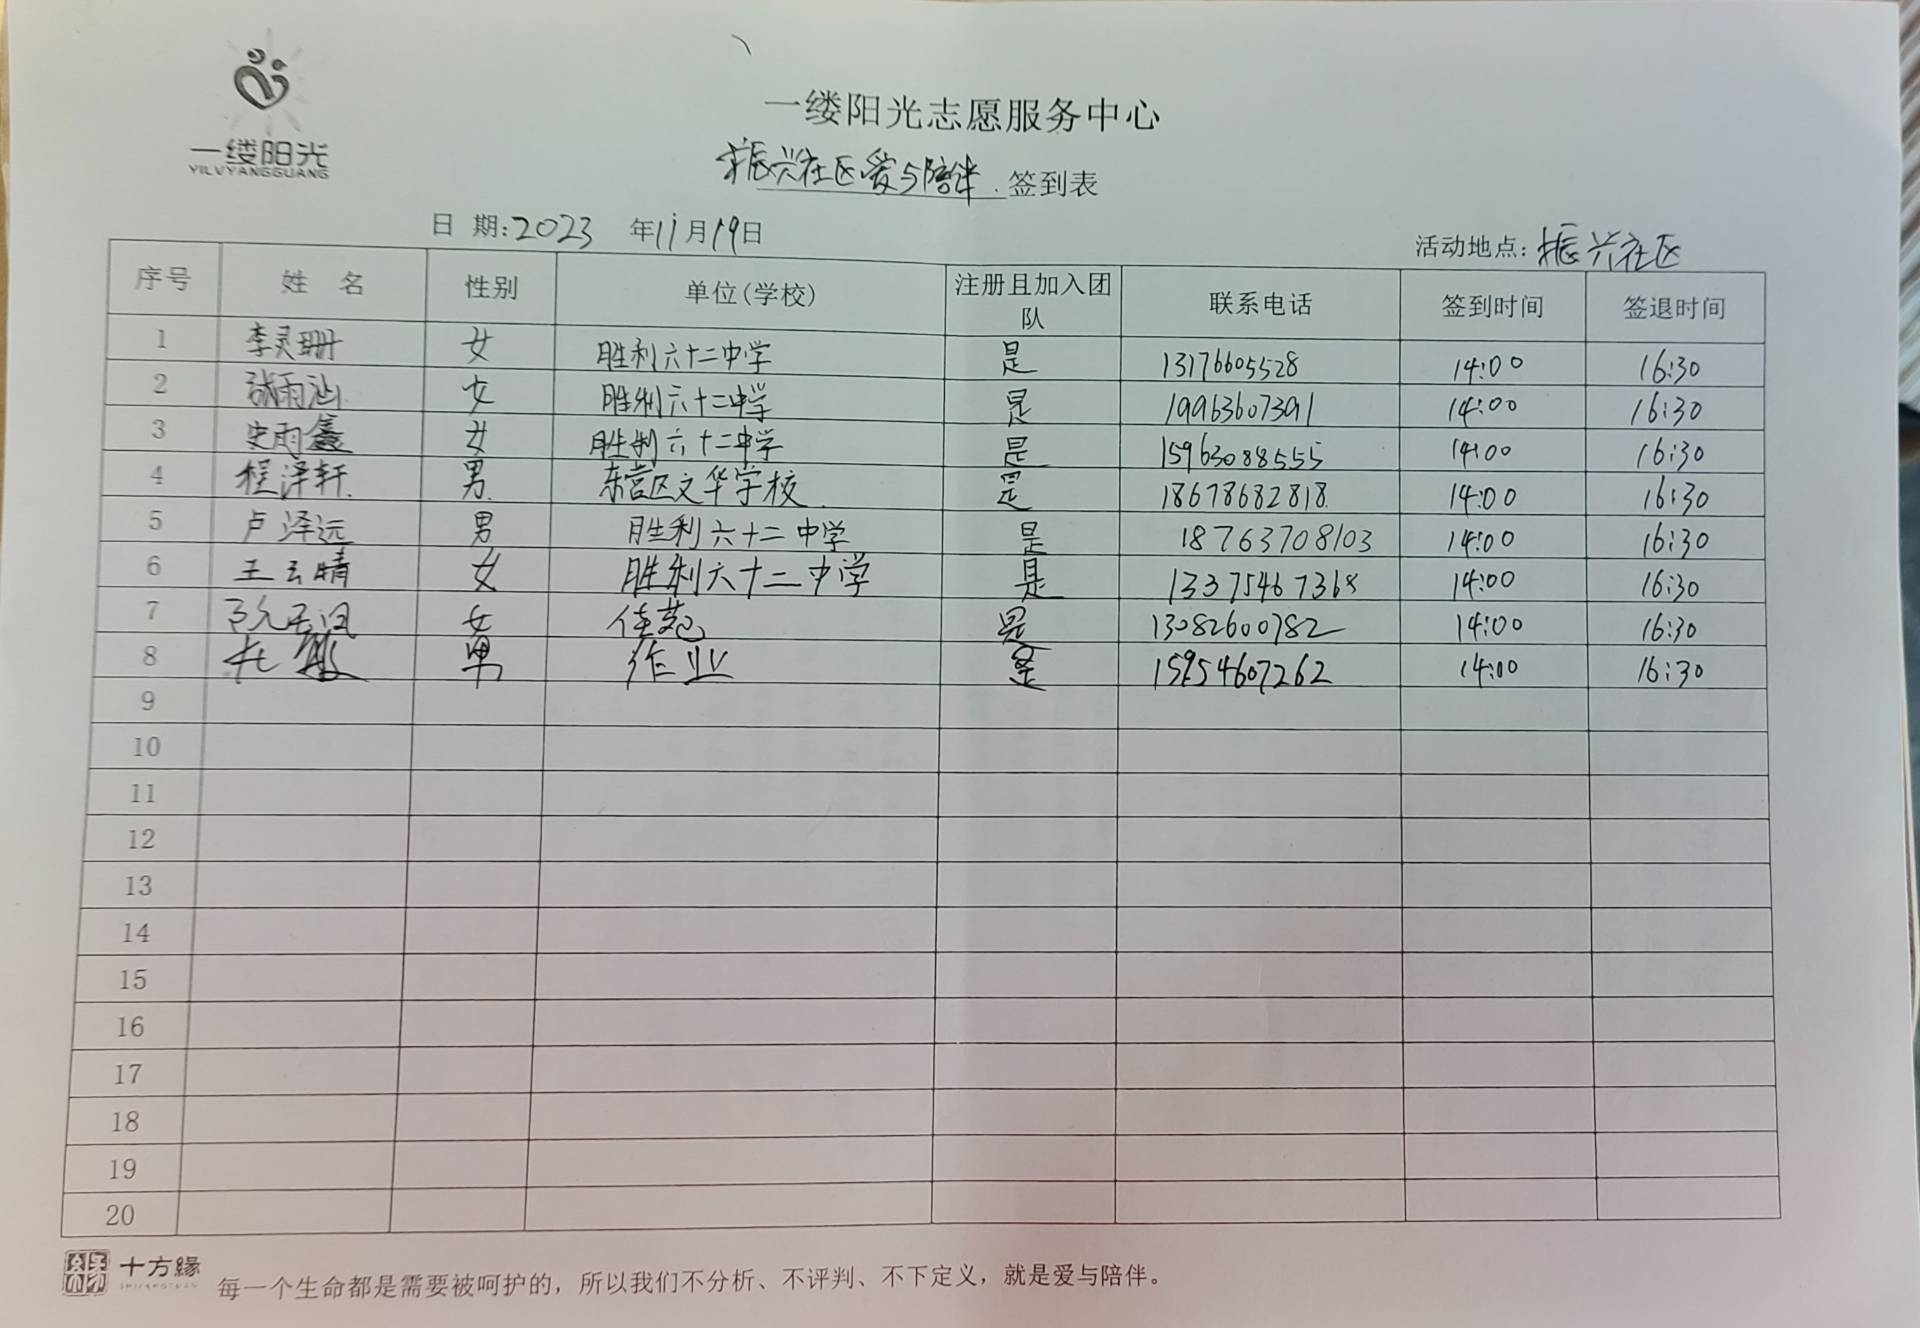 一缕阳光
YILVYANGGUANG
一缕阳光志愿服务中心
振兴社区爱与陪伴 签到表
日 期:2023 年11月19日 活动地点:振兴社区
序号 姓 名 性别 单位(学校) 注册且加入团队 联系电话 签到时间 签退时间
1 李灵珊 女 胜利六十二中学 是 13176605528 14:00 16:30
2 张雨汕 女 胜利六十二中学 是 19963607391 14:00 16:30
3 史雨鑫 女 胜利六十二中学 是 15963088555 14:00 16:30
4 程泽轩 男 东营区文华学校 是 18678682818 14:00 16:30
5 卢泽远 男 胜利六十二中学 是 18763708103 14:00 16:30
6 王云晴 女 胜利六十二中学 是 13375467368 14:00 16:30
7 女 佳苑 是 13082600782 14:00 16:30
8 男 作业 是 15954607262 14:00 16:30
9
10
11
12
13
14
15
16
17
18
19
20
十方緣
每一个生命都是需要被呵护的，所以我们不分析、不评判、不下定义，就是爱与陪伴。